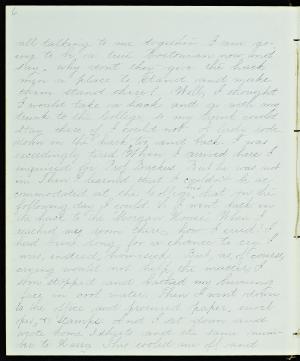 6
all talking to me together I am go-
ing to be a true Bostonian now and
say, why don't they give the hack
men a place to stand and make
them stand there! Well, I thought
I would take a hack and go with my
trunk to the College so my trunk could
stay there if I could not. A lady rode
down in the hack too and back. I was
exceedingly tired. When I arrived here I
inquired for Prof. But he was not
in. Then I learned that I couldn't be ac-
commodated at the College, but on the
following day I could. So I went back in
the hack to the Morgan House. When I
reached my room there, how I cried! I
had been long for a chance to cry. I
was, indeed, home-sick. But, as, of course,
crying would not help the matter, I
soon stopped and bathed my burning
face in cool water. Then I went down
to the office and procured paper, envel-
opes, & stamps. And I sat down and
wrote home sheets and the same num-
ber to Henry. This cooled me off and